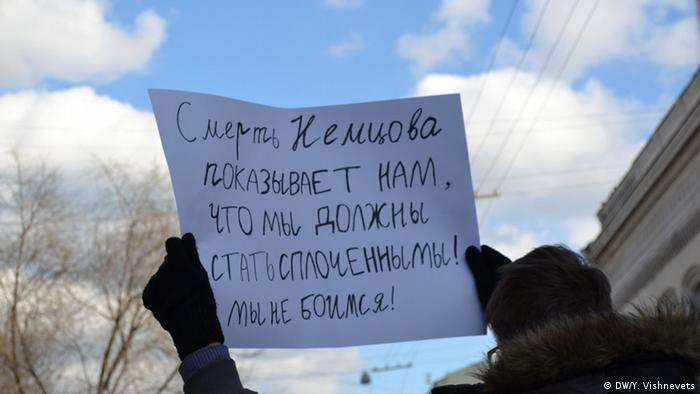 Смерть Немцова
показывает нам,
что мы должны
стать сплоченными!
мы не боимся!
© DW/Y. Vishnevets